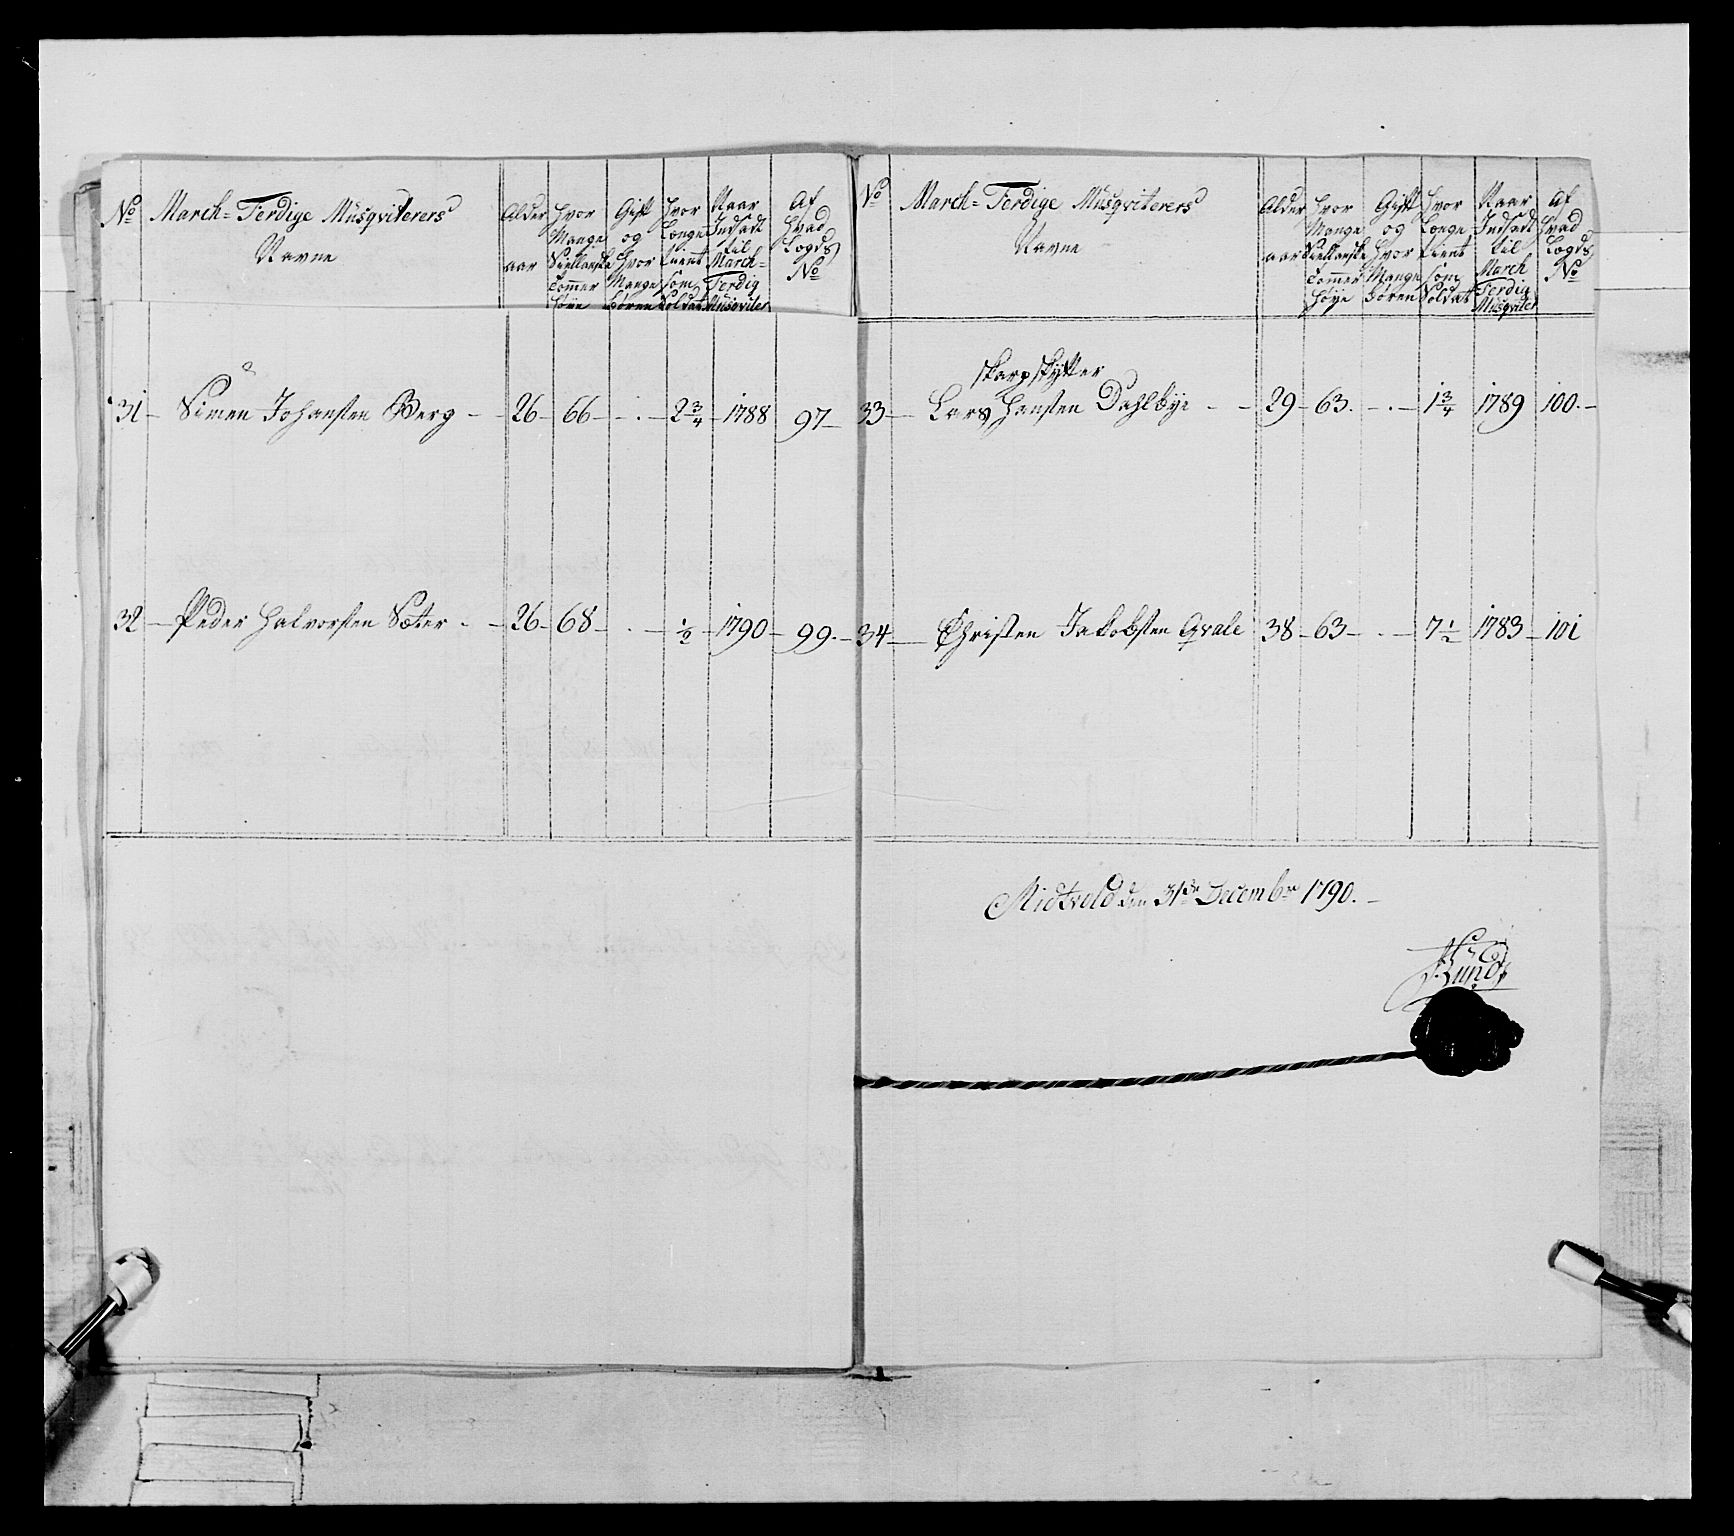 No March-Ferdige Musqviterers Navne
Alder aar
Hvor Mange Siellanske Tommer Høye
Gift og Hvor Mange Børen
Hvor Længe tient som Soldat
Naar Indsadt til March-Ferdig Musqviter
Af Hvad Lægds No
31 - Simen Johansten Berg - - 26 - 66 - . - 2 3/4 - 1788 97 -
32 - Peder Halvorsten Sæter - - 26 - 68 - . - 1/2 - 1790 - 99. -
No March-Ferdige Musqviterers Navne
Alder aar
Hvor Mange Siellanske Tommer Høye
Gift og Hvor Mange Børen
Hvor Længe tient som Soldat
Naar Indsadt til March Ferdig Musqviter
Af Hvad Lægds No
skarpskytter
33 - Lars Hansten Dahlbye - - 29 - 63. - . - 1 3/4 1789 100. -
34 - Christen Jakobsten Qvale 38 - 63 - . - 7 1/2 1783 - 101
Midtvold den 31de Decembr 1790. -